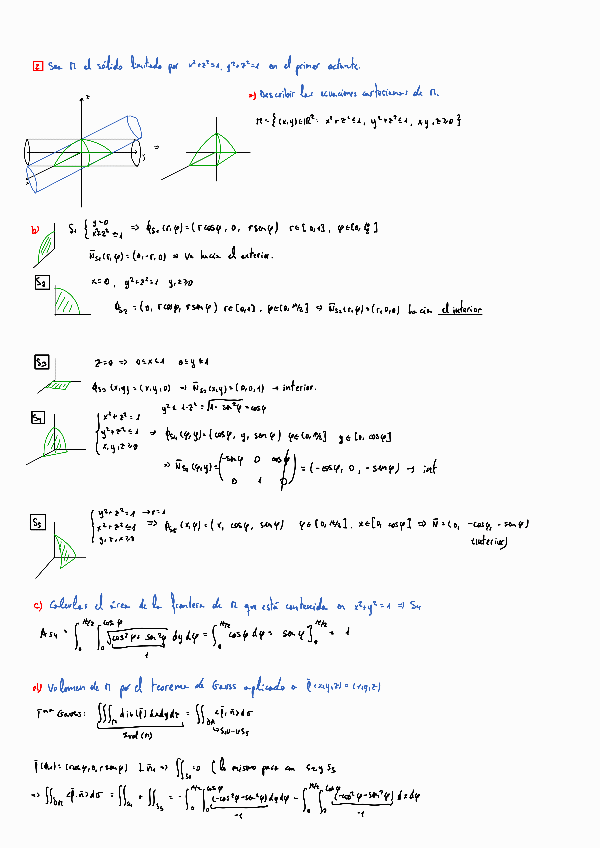 2 Sea M el sólido limitado por x²+z²=1, y²+z²=1 en el primer octante.
a) Describir las ecuaciones cartesianas de M.
M = {(x,y)∈ℝ²: x²+z²≤1, y²+z²≤1, x,y,z≥0}
z
=
b) S₁ { y=0 x²+z²≤1 ⇒ ϕ_S₁(r,φ)=(r cosφ, 0, r senφ) r∈[0,1], φ∈[0,π/2]
N̄_S₁(r,φ)=(0,-r,0) ⇒ va hacia el exterior.
S₂ x=0, y²+z²=1 y,z≥0
ϕ_S₂ = (0, r cosφ, r senφ) r∈[0,1], φ∈[0,π/2] ⇒ N̄_S₂(r,φ)=(r,0,0) hacia el interior
S₃ z=0 ⇒ 0≤x≤1 0≤y≤1
ϕ_S₃(x,y)=(x,y,0) ⇒ N̄_S₃(x,y)=(0,0,1) → interior.
y²≤1-z²=√1-sen²φ=cosφ
S₄ { x²+z²=1 y²+z²≤1 x,y,z≥0 ⇒ ϕ_S₄(φ,y)=(cosφ, y, senφ) φ∈[0,π/2] y∈[0,cosφ]
⇒ N̄_S₄(φ,y)=(-senφ 0 cosφ 0 1 0) = (-cosφ, 0, -senφ) → int
S₅ { y²+z²=1 → r=1 x²+z²≤1 y,z,x≥0 ⇒ ϕ_S₅(x,φ)=(x, cosφ, senφ) φ∈[0,π/2], x∈[0,cosφ] ⇒ N̄=(0, -cosφ, -senφ)
(interior)
c) Calcular el área de la frontera de M que está contenida en x²+y²=1 ⇒ S₄
A_S₄ = ∫₀^π/2 ∫₀^cosφ √cos²φ+sen²φ dy dφ = ∫₀^π/2 cosφ dφ = senφ]₀^π/2 = 1
1
d) Volumen de M por el teorema de Gauss aplicado a F̄(x,y,z)=(x,y,z)
Tᵐᵃ Gauss: ∭_M div(F̄) dxdydz = ∬_∂M <F̄,n̄>dσ
3vol(M) S₁∪…∪S₅
F̄(ϕ_S₁)=(r cosφ, 0, r senφ) ⊥ n̄_S₁ ⇒ ∬_S₁=0 (lo mismo pasa con S₂ y S₃
⇒ ∬_∂M <F̄,n̄>dσ = ∬_S₄ + ∬_S₅ = -∫₀^π/2 ∫₀^cosφ (-cos²φ-sen²φ) dy dφ - ∫₀^π/2 ∫₀^cosφ (-cos²φ-sen²φ) dx dφ
-1 -1